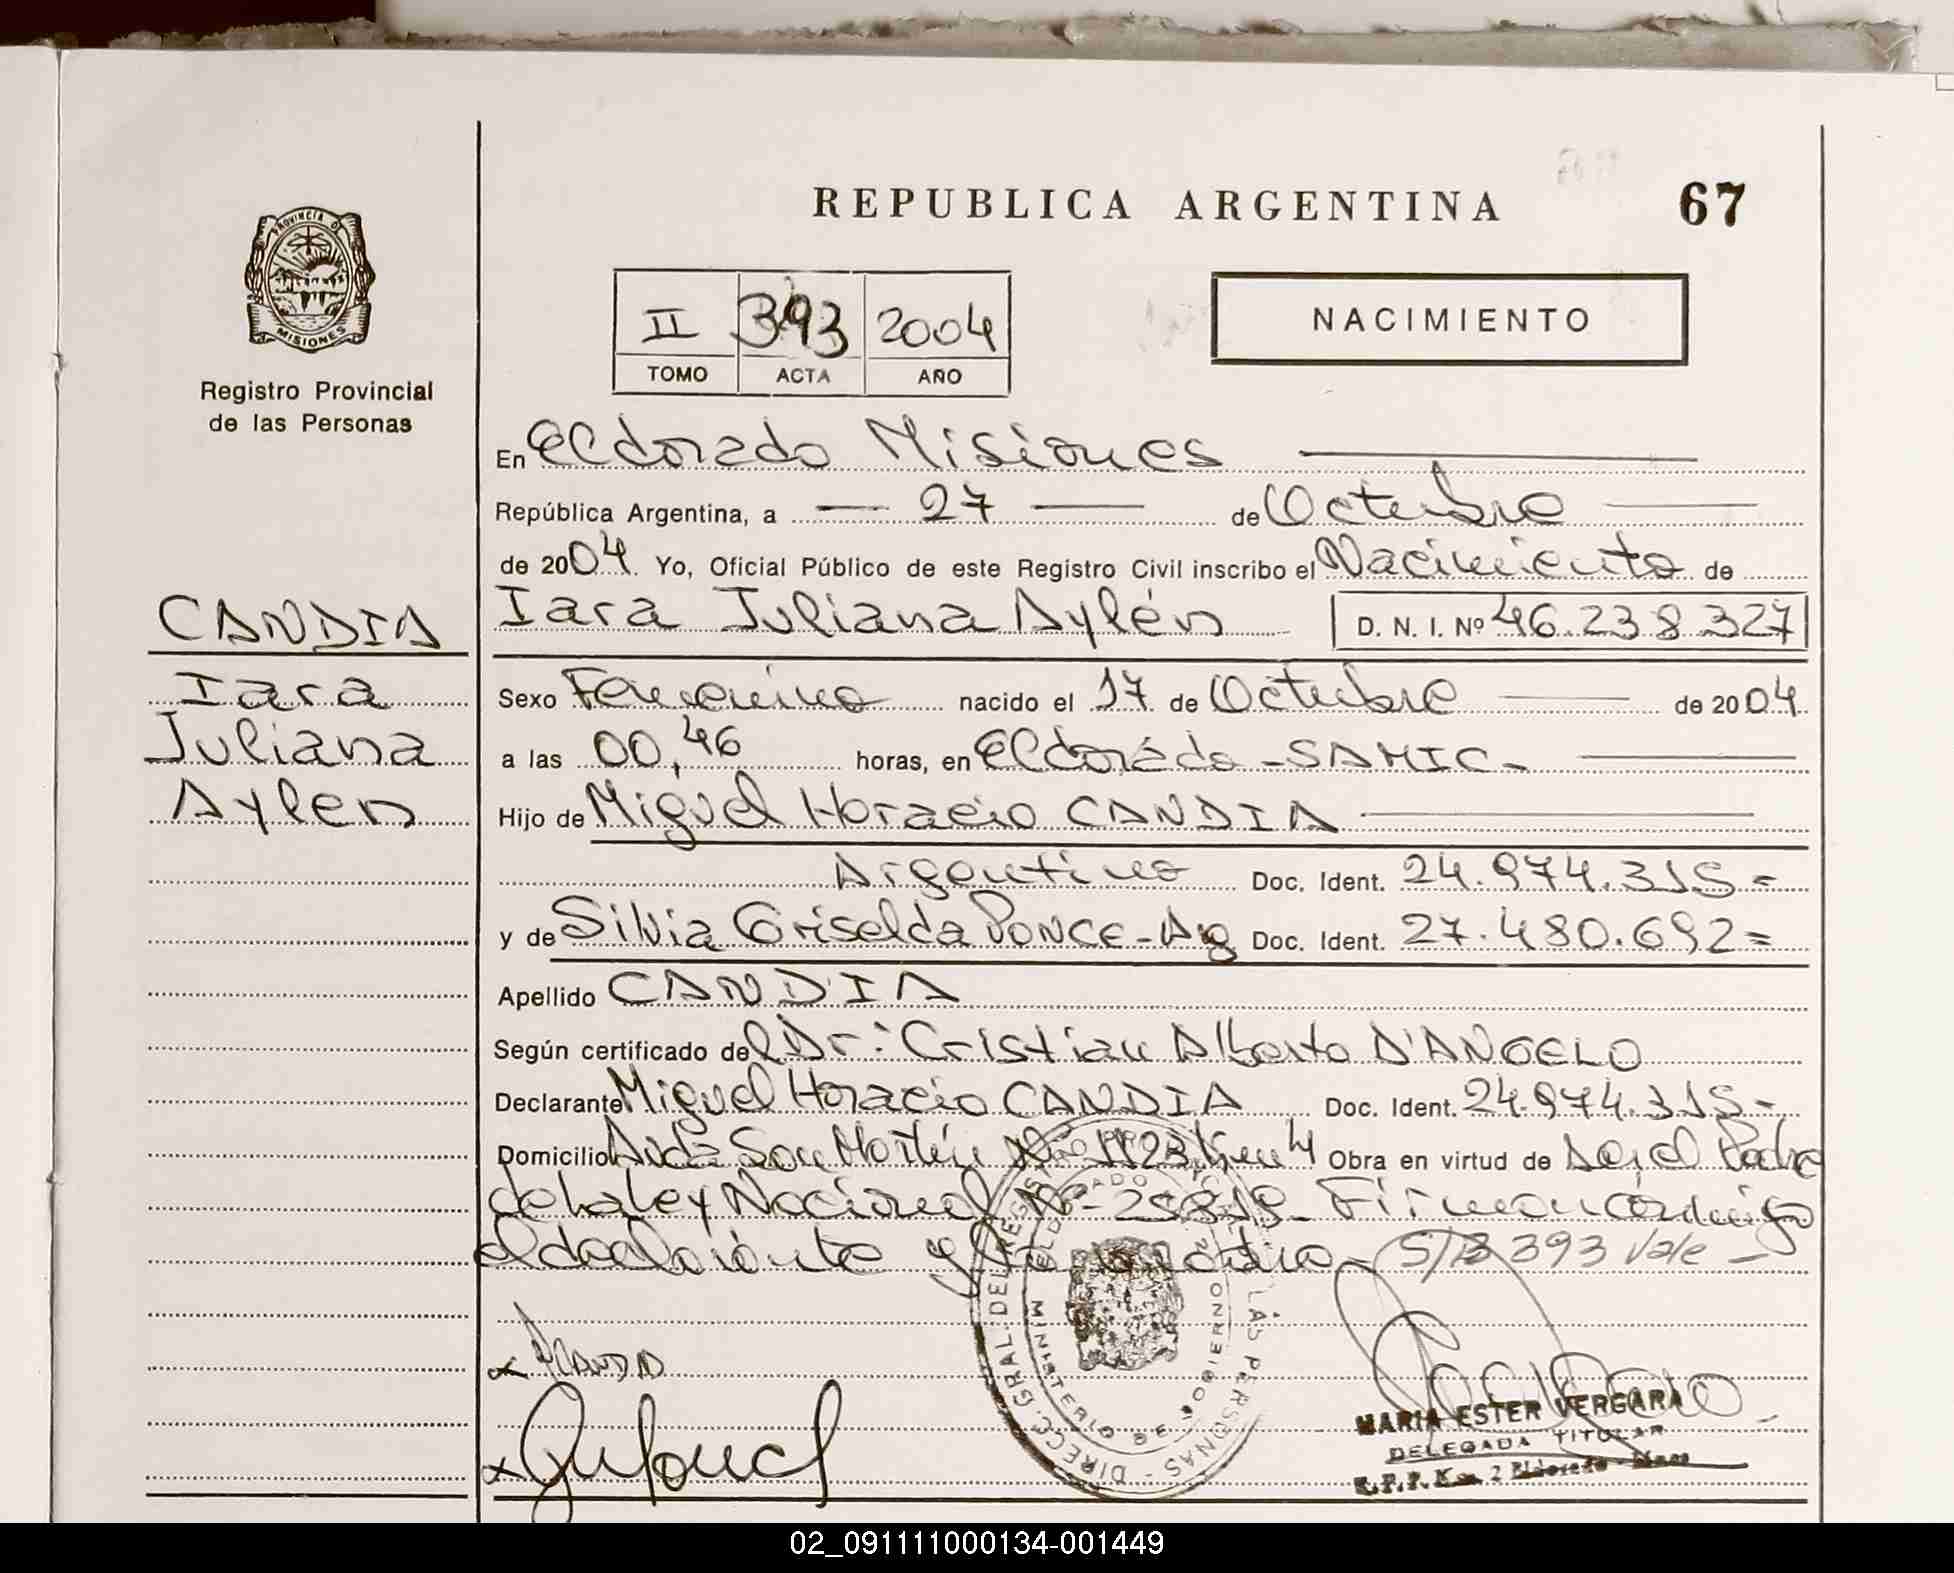 REPUBLICA ARGENTINA
67
PROVINCIA D
MISIONES
Registro Provincial
de las Personas
II 393 2004
TOMO ACTA AÑO
NACIMIENTO
En Eldorado Misiones
República Argentina, a 27 de Octubre
de 2004. Yo, Oficial Público de este Registro Civil inscribo el Nacimiento de
Iara Juliana Aylén D. N. I. Nº 46.238.327
CANDIA
Iara
Juliana
Aylen
Sexo Femenino nacido el 17 de Octubre de 2004
a las 00,46 horas, en Eldorado - SAMIC -
Hijo de Miguel Horacio CANDIA
Argentino Doc. Ident. 24.974.315 =
y de Silvia Griselda PONCE - Arg Doc. Ident. 27.480.692 =
Apellido CANDIA
Según certificado del Dr: Cristian Alberto D'ANGELO
Declarante Miguel Horacio CANDIA Doc. Ident. 24.974.315 -
Domicilio Avda San Martín Nº 1123 Km 4 Obra en virtud de Ser el Padre
de la Ley Nacional Nº 25819 - Firman conmigo
el declarante y la S/B 393 Vale -
DIRECC. GRAL. DEL REGISTRO LAS PERSONAS
MINISTERIO DE GOBIERNO
MARIA ESTER VERGARA
DELEGADA TITULAR
R.P.P. Km. 2 Eldorado - Mnes
02_091111000134-001449